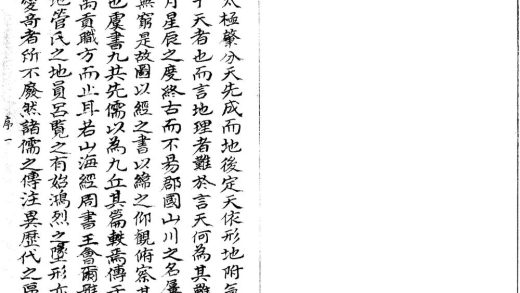 太極肇分天先成而地後定天依形地附氣
于天者也而言地理者難於言天何為其難
月星辰之度終古而不易郡國山川之名屢
無窮是故圖以經之書以緯之仰觀俯察其
也虞書九共先儒以為九丘其篇軼焉傳于
禹貢職方而止耳若山海經周書王會爾雅
地管氏之地員呂覽之有始鴻烈之墬形亦
愛奇者所不廢然諸儒之傳注異歷代之
序一